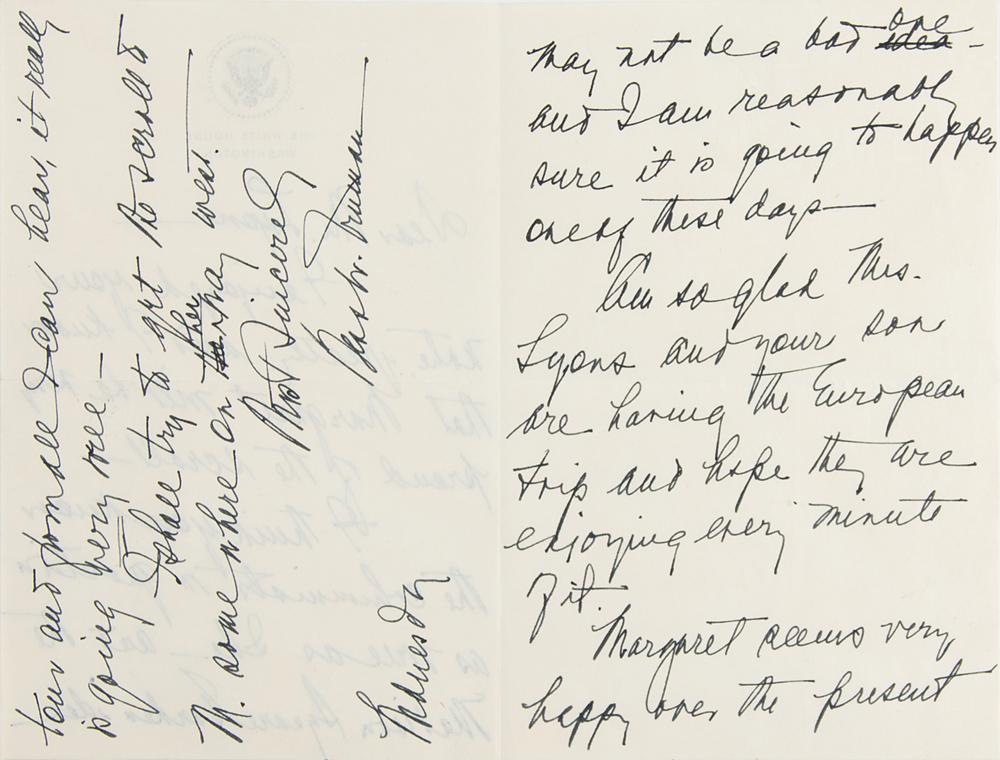 may not be a bad one
idea -
and I am reasonably
sure it is going to happen
one of these days—
Am so glad Mrs.
Lyons and your son
are having the European
trip and hope they are
enjoying every minute
of it.
Margaret seems very
happy over the present
tour and from all I can hear, it really
is going very well —
I shall try to get the scroll to
M. somewhere on her way west.
Most Sincerely
Bess W. Truman
Wednesday